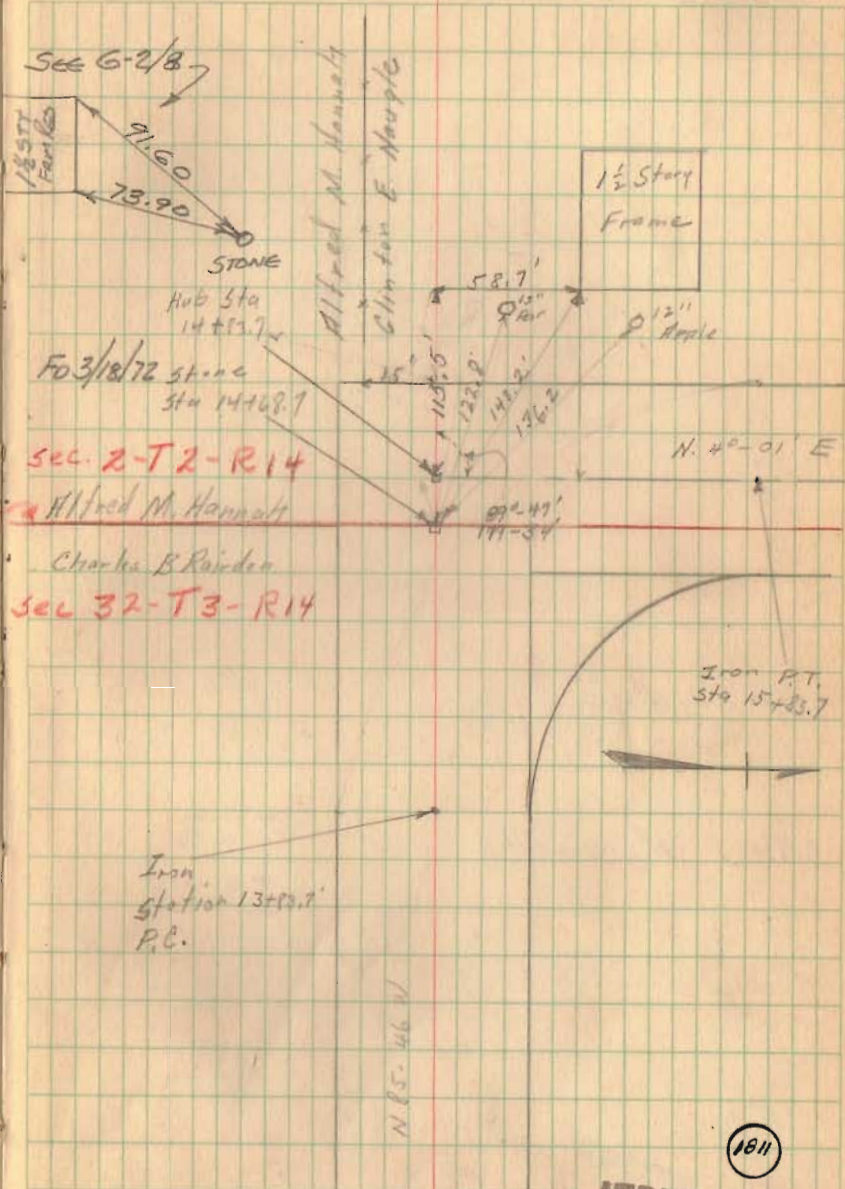 SEE G-2/8
1½ STY
Fam Res
91.60
73.90
STONE
Alfred M. Hannah
Clinton E. Naugle
1½ Story
Frame
58.7'
12"
Apple
Hub Sta
14+83.7
Fo 3/18/72 Stone
Sta 14+68.7
15'
115.5'
122.8'
148.2'
136.2
N. 4°-01' E
sec. 2-T2-R14
Alfred M. Hannah
89°-47'
Charles B Rairden
sec 32-T3-R14
Iron P.T.
Sta 15+83.7
Iron
Station 13+83.7'
P.C.
N 85-46 W
1811